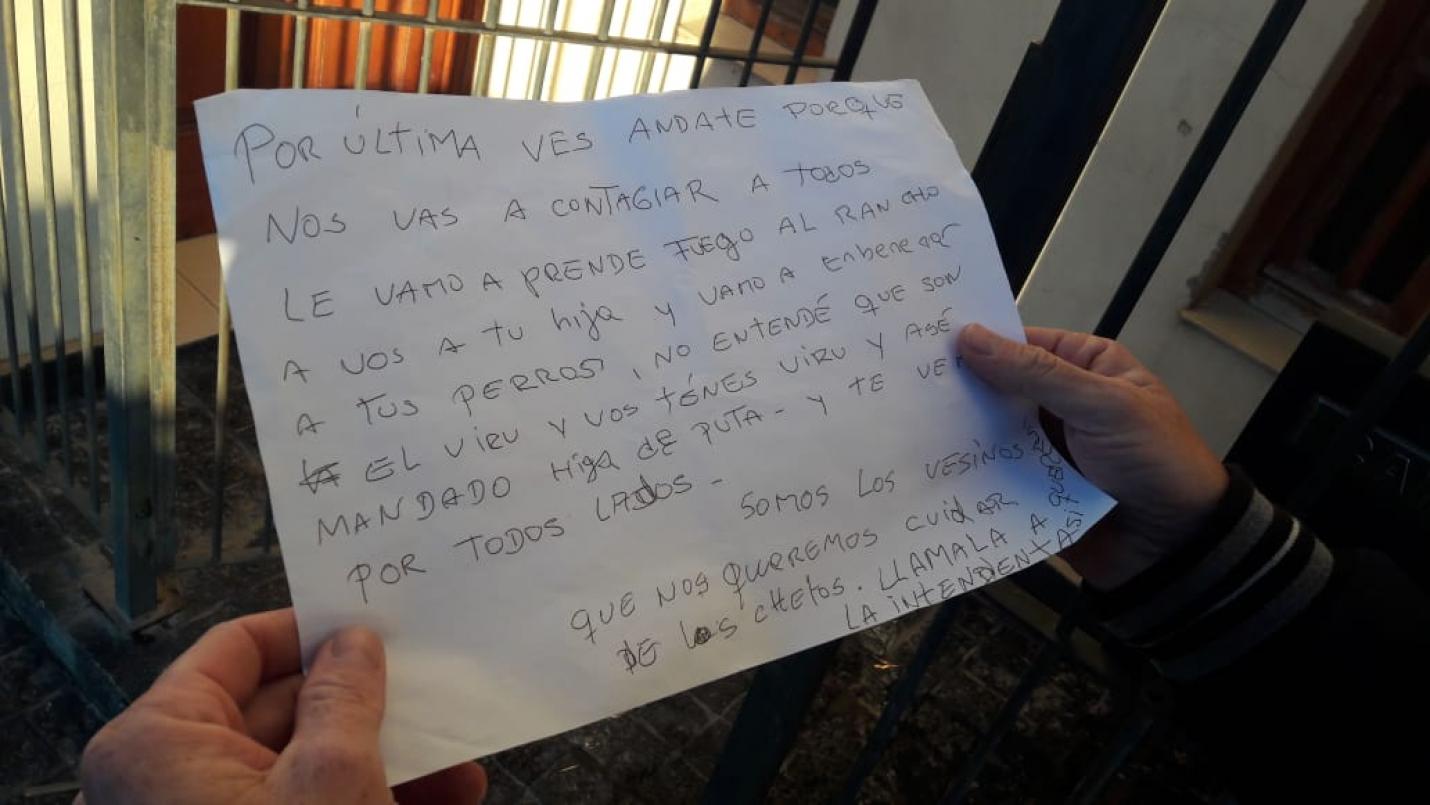 POR ÚLTIMA VES ANDATE PORQUE
NOS VAS A CONTAGIAR A TODOS
LE VAMO A PRENDE FUEGO AL RANCHO
A VOS A TU hija Y VAMO A Enbenenar
A TUS PERROS, NO ENTENDÉ QUE SON
EL VIRU Y VOS TÉNES VIRU Y ASÉ
MANDADO Higa dE PUTA - Y TE VE
POR TODOS LADOS -
SOMOS LOS VESINOS
QUE NOS QUEREMOS CUIDAR
DE LOS CHETOS. LLAMALA A
LA INTENDENTA SI